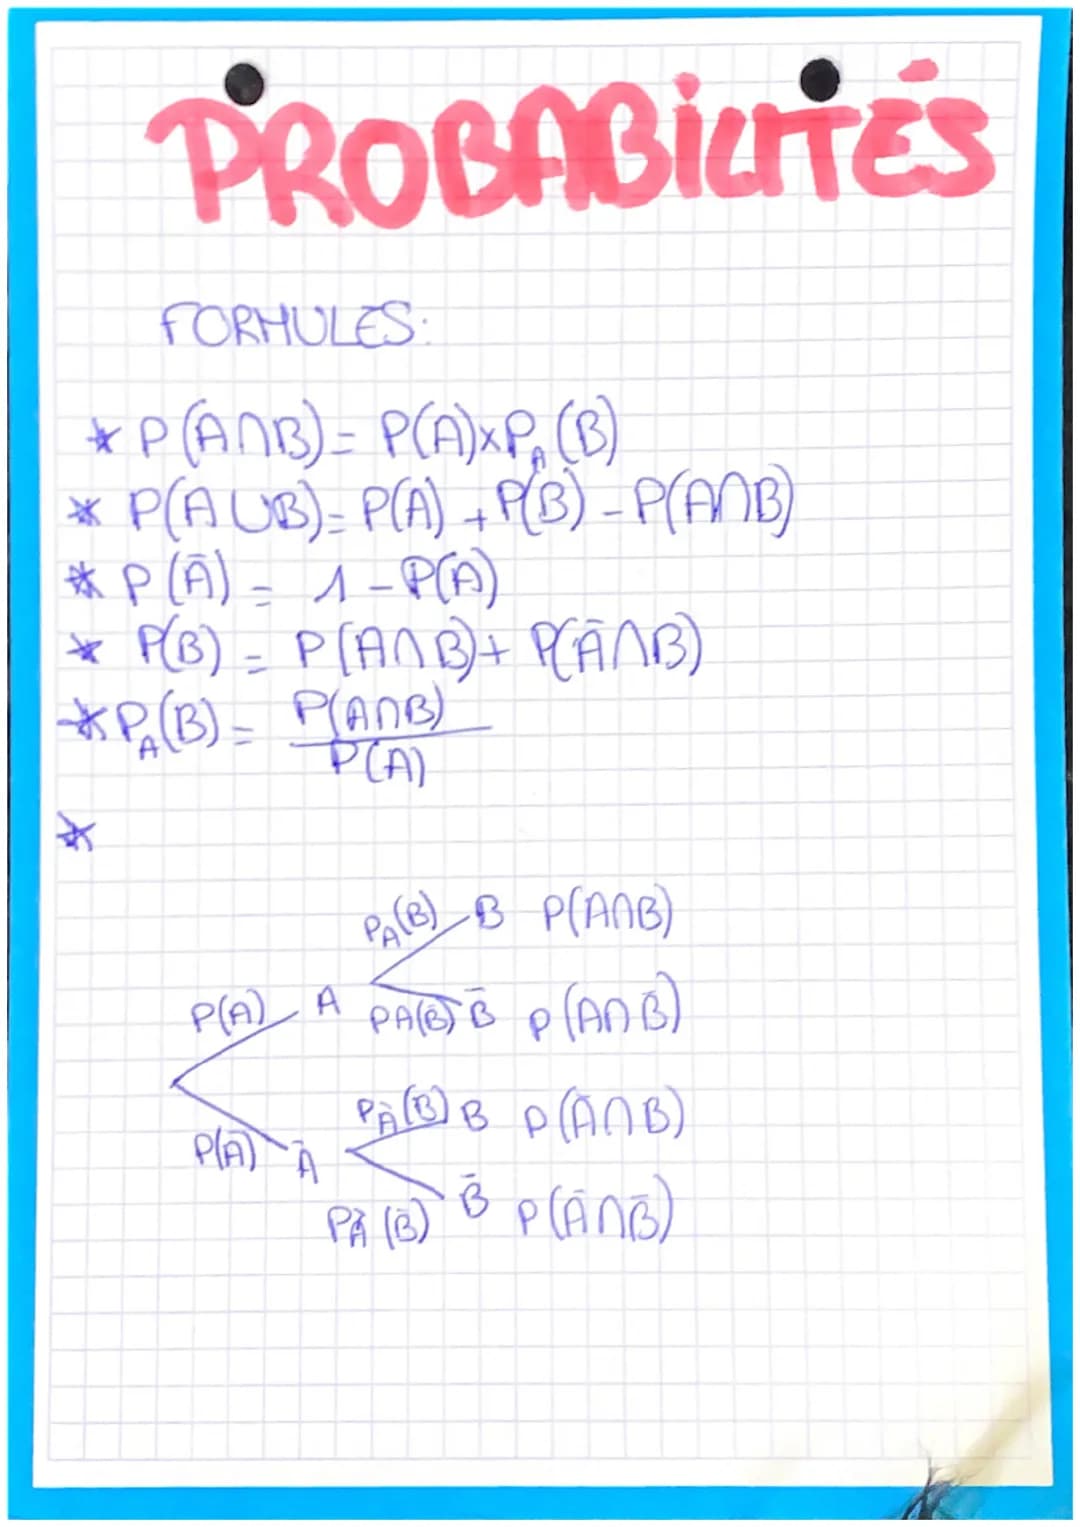 PROBABILITÉS
FORMULES:
* P(A∩B) = P(A)×P_A(B)
* P(A∪B) = P(A) + P(B) - P(A∩B)
* P(Ā) = 1 - P(A)
* P(B) = P(A∩B) + P(Ā∩B)
* P_A(B) = P(A∩B)
P(A)
*
P_A(B) B P(A∩B)
P(A) A PA(B̄) B̄ P(A∩B̄)
PĀ(B) B P(Ā∩B)
P(Ā) Ā
PĀ(B̄) B̄ P(Ā∩B̄)